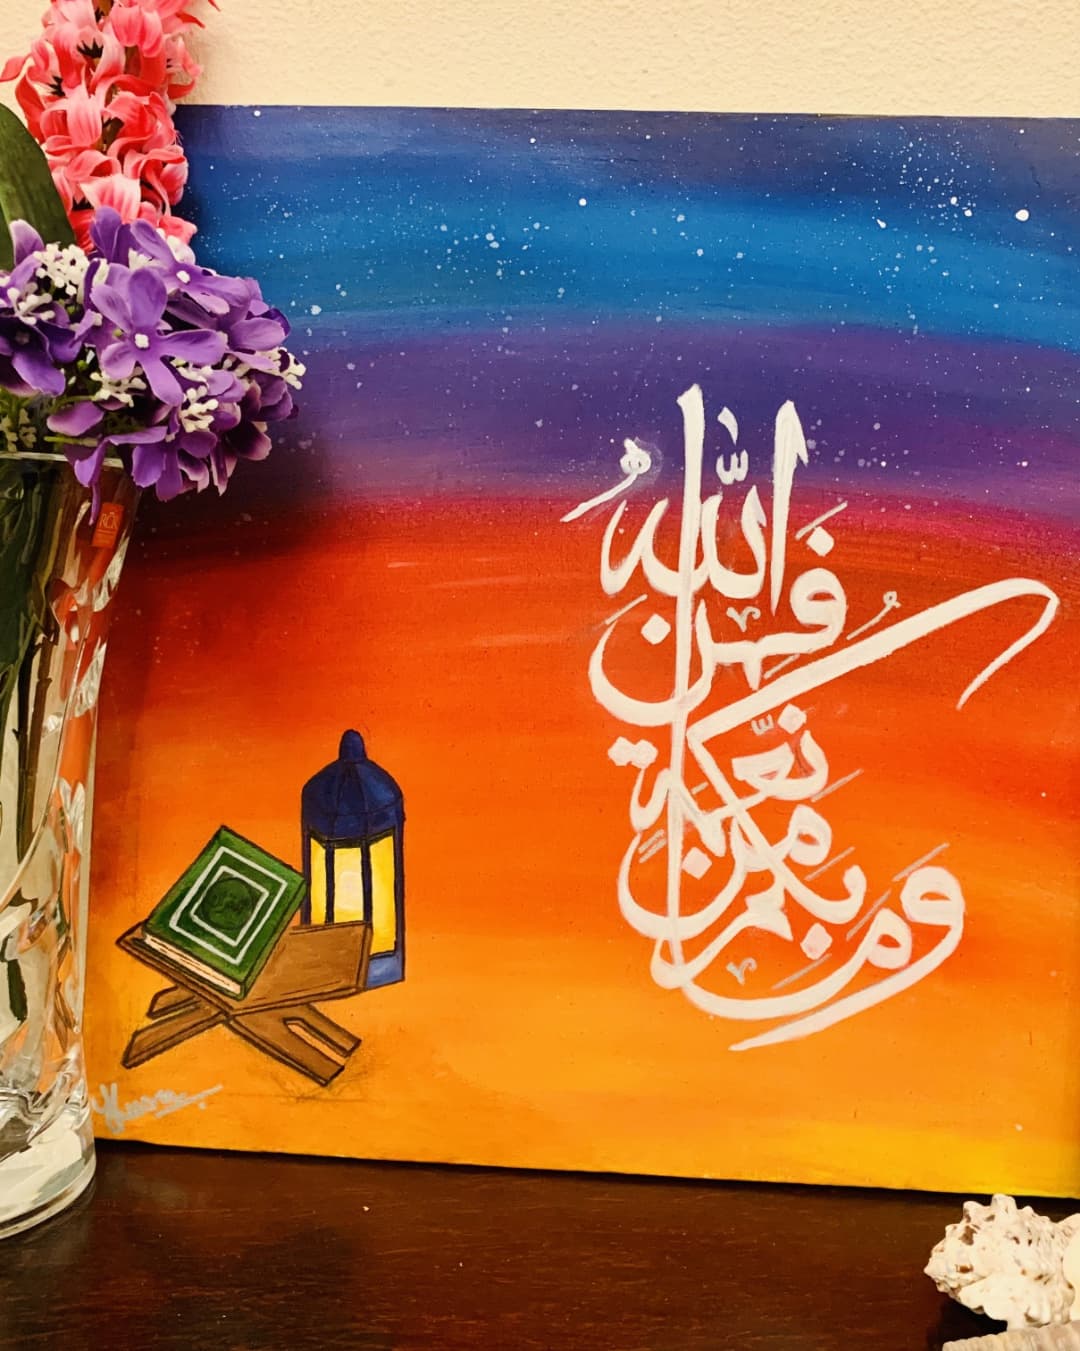 وما بكم من نعمة فمن الله
RCR